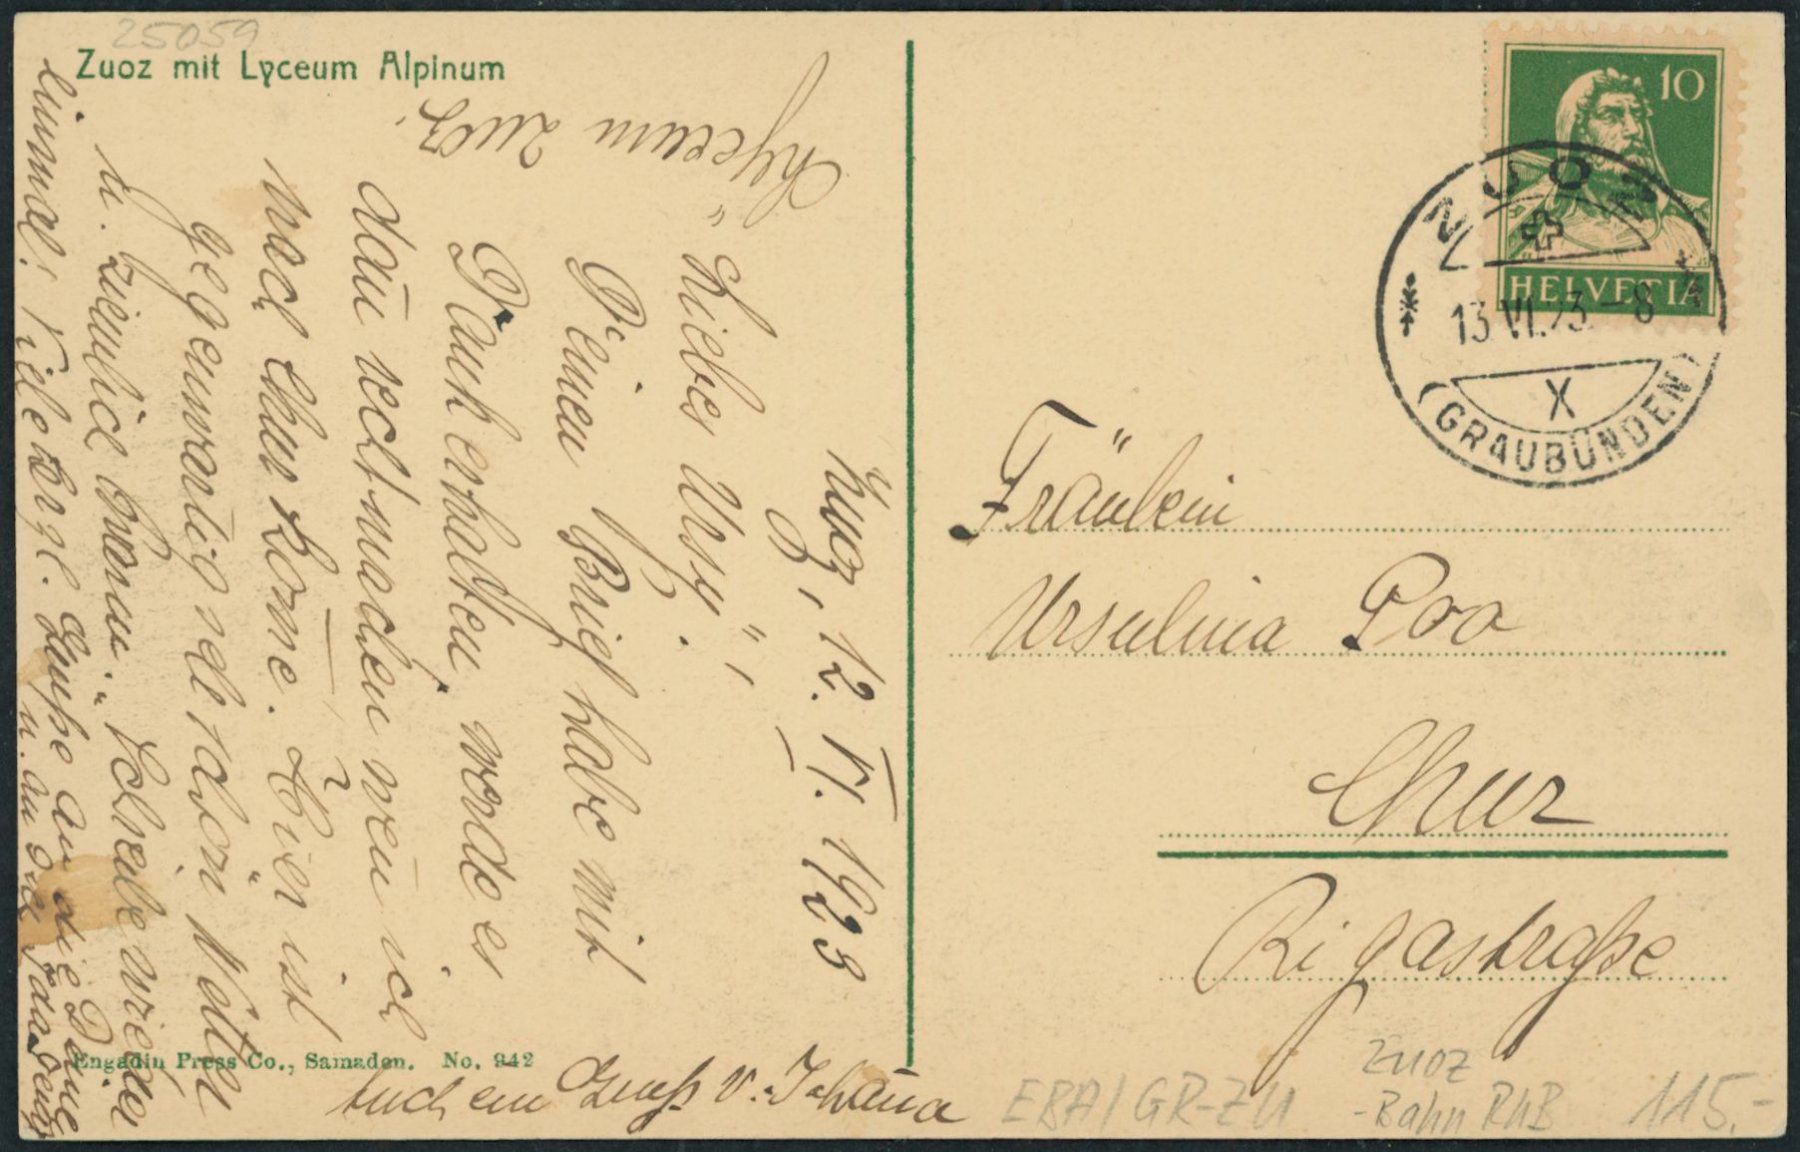 25059
Zuoz mit Lyceum Alpinum
Lyceum Zuoz.
Zuoz, 12. VI. 1923
"Liebes Ursy.",
Deinen Brief habe mit
Dank erhalten, werde es
dan recht machen wen ich
nach Chur kome. Hier ist
gegenwärtig
u. ziemlich
einmal! Viele herzl. Grüsse an die Deine
u. an
Auch ein Gruss v. Johana
Engadin Press Co., Samaden. No. 942
10
HELVETIA
ZUOZ
13.VI.23.-8
X
(GRAUBÜNDEN)
Fräulein
Ursulina Poo
Chur
Rigastraße
EBA/GR-ZU
Zuoz
-Bahn RhB
115.-